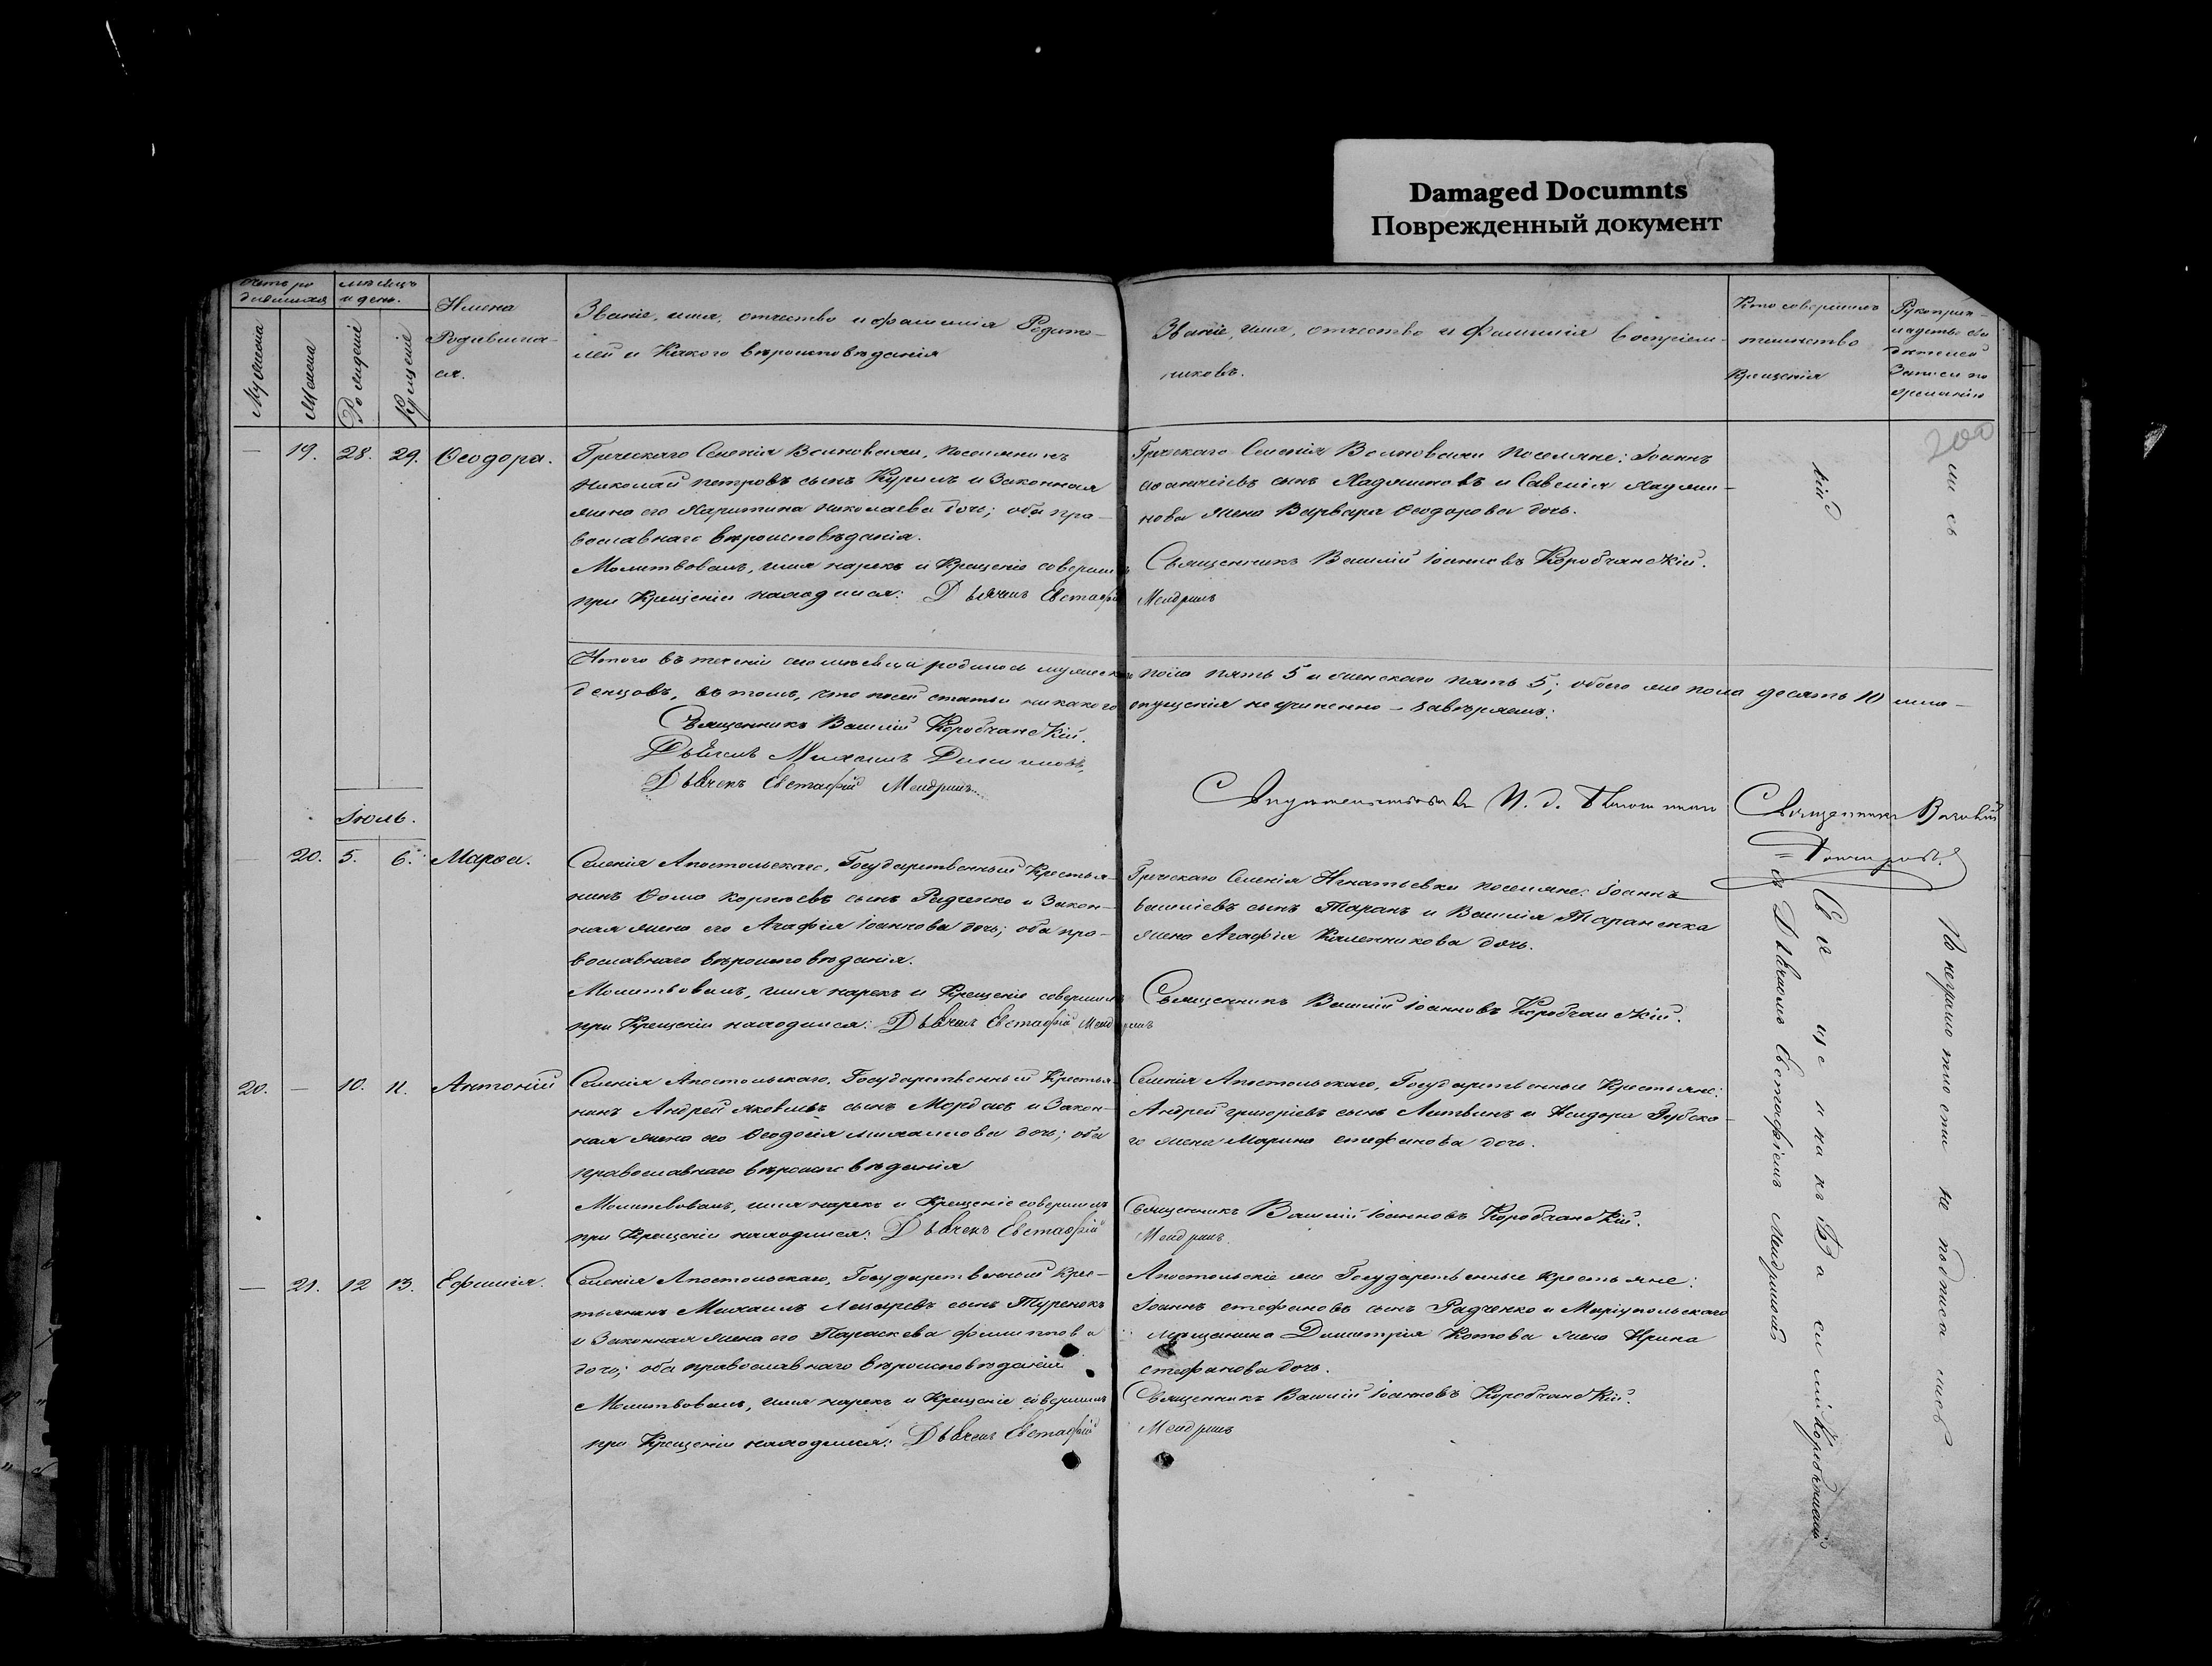 Damaged Documnts
Поврежденный документ
Счетъ ро
дившихся
мѣсяцъ
и день.
Мужеска
Женска
Рожденіе
Крещеніе
Имена
Родившиха-
ся.
Званіе, имя, отчество и фамилія Родите-
лей и Какого вѣроисповѣданія
Званіе, имя, отчество и фамилія воспріем-
никовъ.
Кто совершилъ
таинство
Крещенія
Рукоприк-
ладство сви
дѣтелей
Записи по
желанію
200
— 19. 28. 29. Ѳеодора.
Греческаго Селенія Волновахи, поселянинъ
Николай петровъ сынъ Курилъ и Законная
жена его Харитина николаева дочь; оба пра-
вославнаго вѣроисповѣданія.
Молитвовалъ, имя нарекъ и Крещеніе совершилъ
при Крещеніи находился: Дьячекъ Евстафій
Греческаго Селенія Волновахи поселяне: Іоаннъ
сынъ Хаджиновъ и Савелія Хаджи-
нова жена Варвара Ѳеодорова дочь.
Священникъ Василій Іоанновъ Коробчанскій.
Мендринъ
кій
Итого въ теченіи сего мѣсяца родилось мужеска пола пять 5 и женскаго пять 5; обоего же пола десять 10 мла-
денцовъ, въ томъ, что по сей статьи никакого опущенія не учиненно – завѣряемъ:
Священникъ Василій Коробчанскій.
Дьячекъ Евстафій Мендринъ.
Священникъ
Іюль.
— 20. 5. 6. Марѳа.
Селенія Апостольскаго, Государственный Крестья-
нинъ Ѳома корнѣевъ сынъ Радченко и Закон-
ная жена его Агафія Іоаннова дочь; оба пра-
вославнаго вѣроисповѣданія.
Молитвовалъ, имя нарекъ и Крещеніе совершилъ
при Крещеніи находился: Дьячекъ Евстафій Мендринъ
Греческаго Селенія Игнатьевки поселяне: Іоаннъ
василіевъ сынъ Таранъ и Василія Тараненка
жена Агафія Калениикова дочь.
Священникъ Василій Іоанновъ Коробчанскій.
20. — 10. 11. Антоній
Селенія Апостольскаго, Государственный Крестья-
нинъ Андрей яковлевъ сынъ Мордасъ и Закон-
ная жена его Ѳеодосія михаилова дочь; оба
православнаго вѣроисповѣданія
Молитвовалъ, имя нарекъ и Крещеніе совершилъ
при Крещеніи находился: Дьячекъ Евстафій
Селенія Апостольскаго, Государственные Крестьяне:
Андрей григоріевъ сынъ Литвинъ и Исидора Губска-
го жена Марина стефанова дочь.
Священникъ Василій Іоанновъ Коробчанскій.
Мендринъ.
— 21. 12 13. Ефимія.
Селенія Апостольскаго, Государственный Крес-
тьянинъ Михаилъ Лазаревъ сынъ Туренокъ
и Законная жена его Параскева филиппова
дочь; оба православнаго вѣроисповѣданія
Молитвовалъ, имя нарекъ и Крещеніе совершилъ
при Крещеніи находился: Дьячекъ Евстафій
Апостольскіе же Государственные крестьяне:
Іоаннъ стефановъ сынъ Радченко и Маріупольскаго
мѣщанина Димитрія Котова жена Ирина
стефанова дочь.
Священникъ Василій Іоанновъ Коробчанскій.
Мендринъ
Священникъ Василій Коробчанскій
съ Дьячкомъ Евстафіемъ Мендринымъ
По неграмотности не подписались